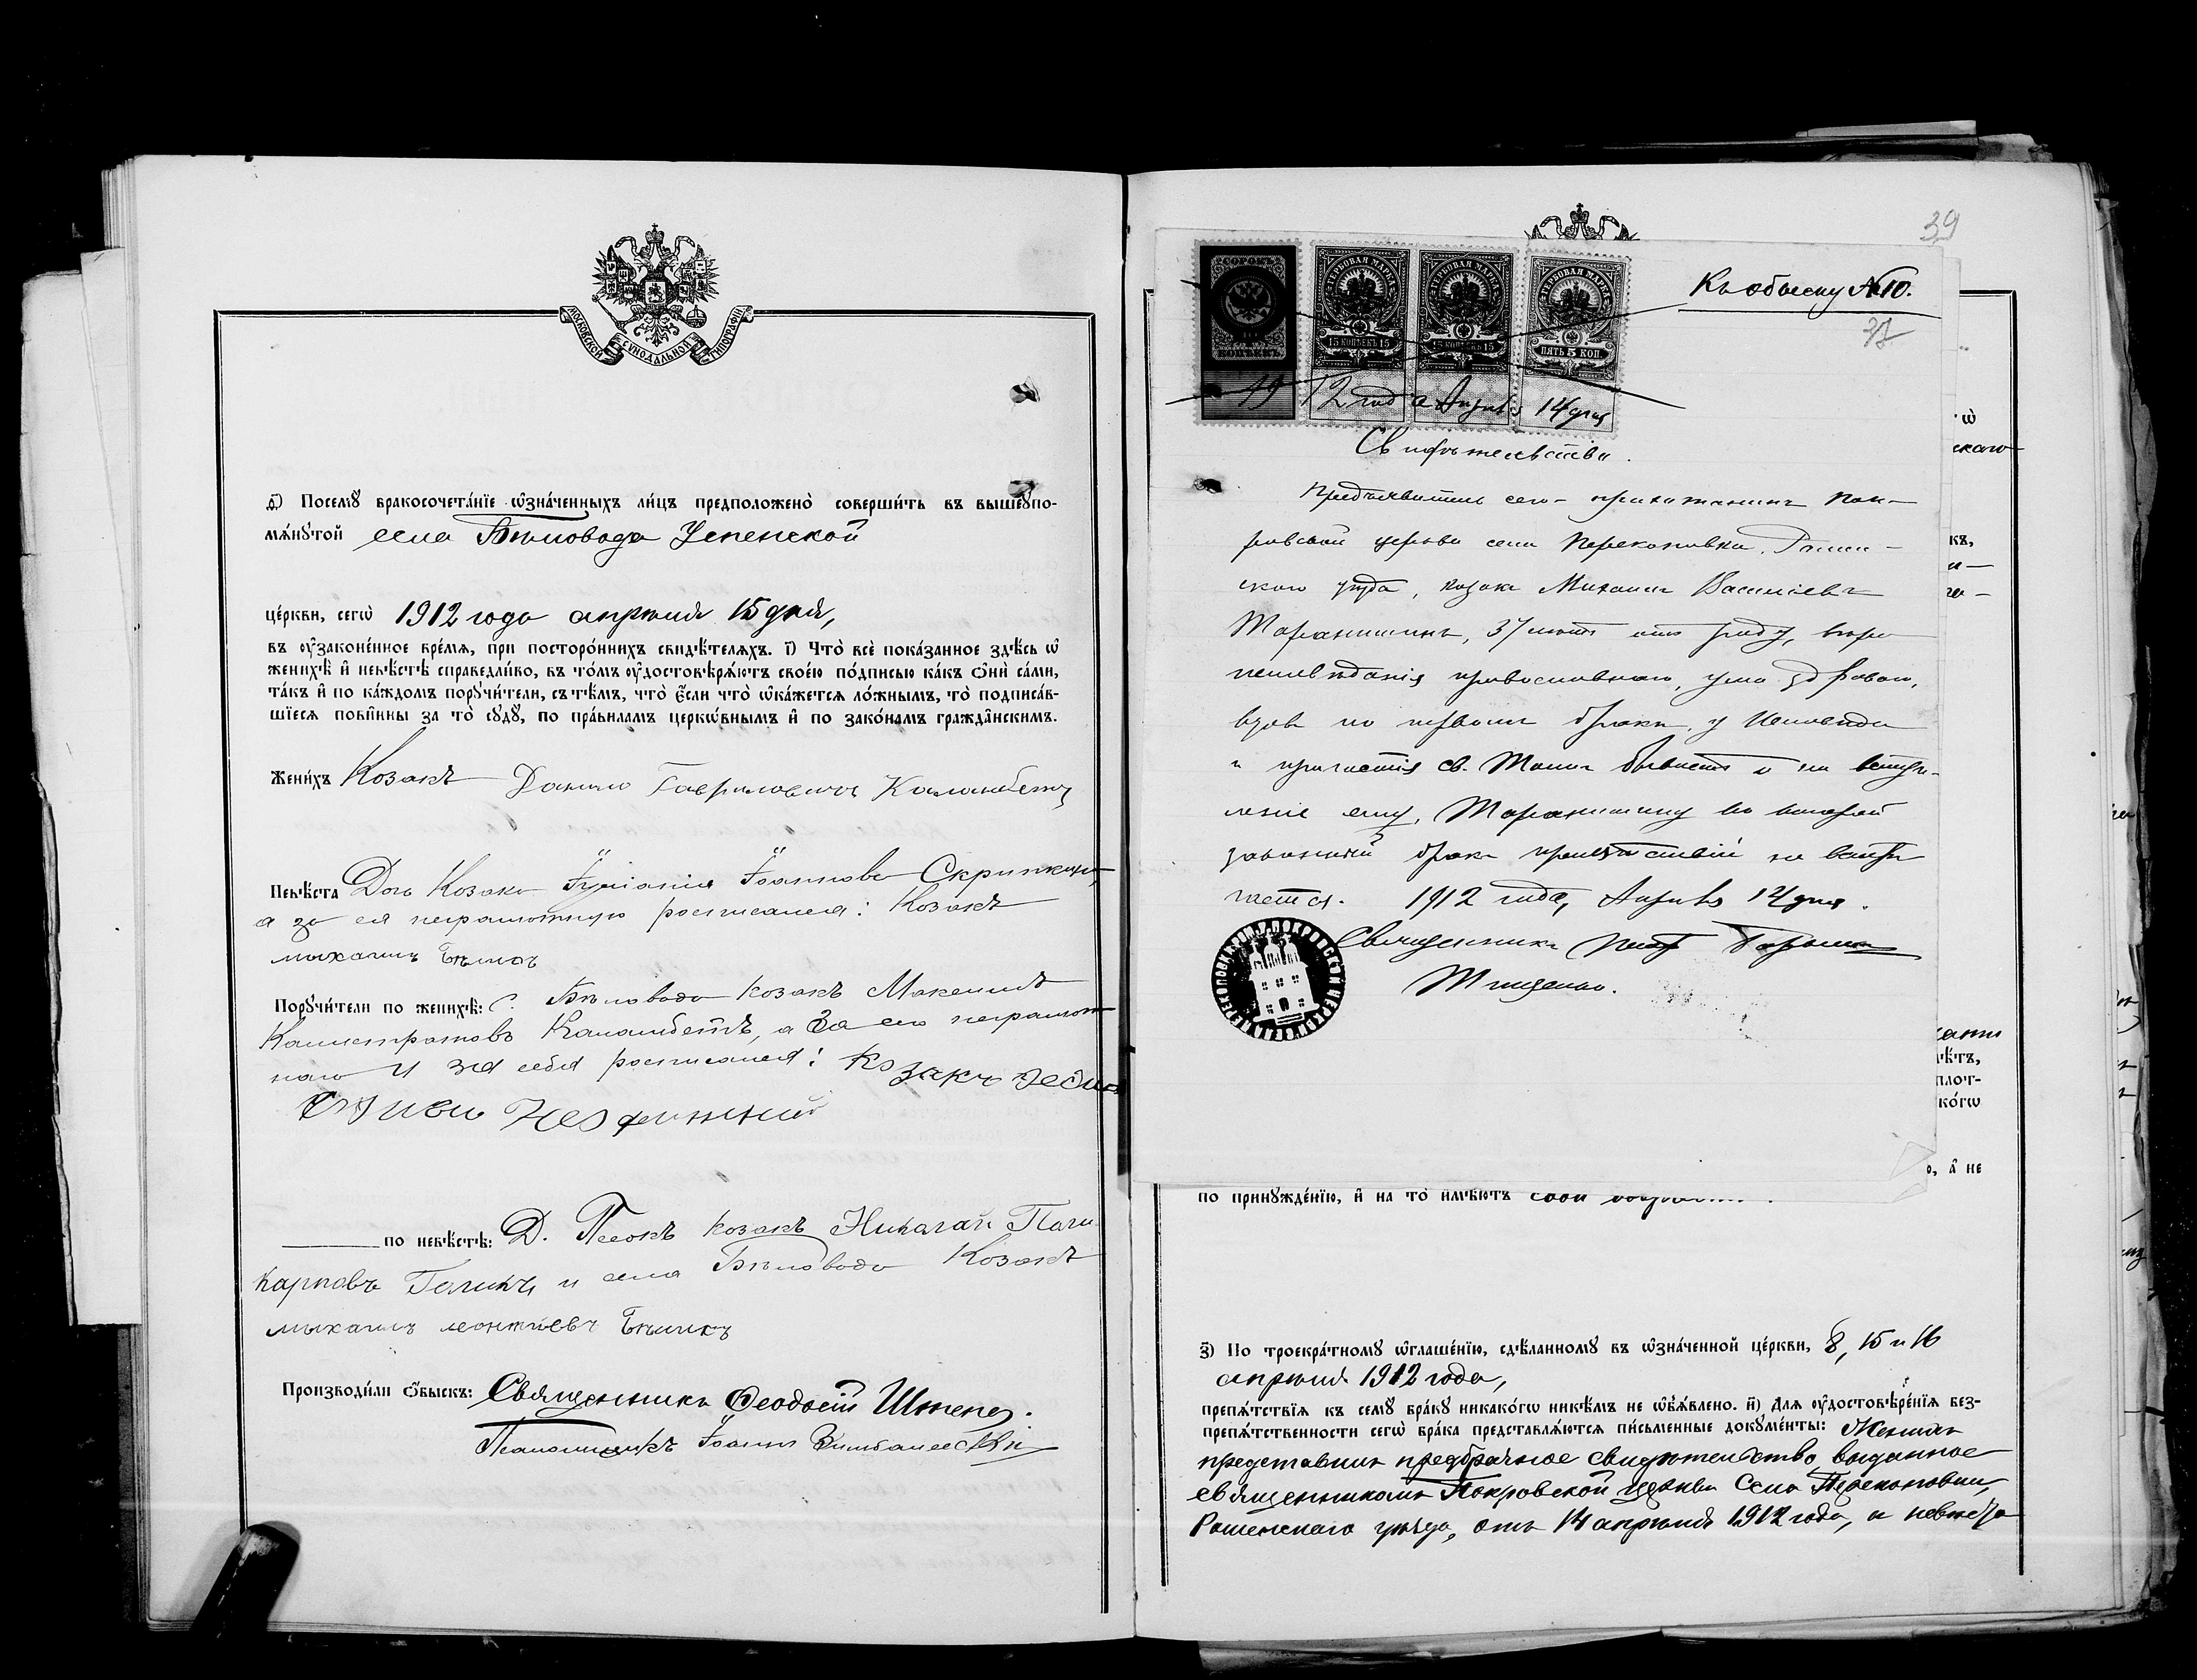 МОСКОВСКОЙ СѴНОДАЛЬНОЙ ТИПОГРАФІИ
Посемꙋ̀ бракосочета́нїе ѡ҆зна́ченныхъ ли́цъ предположено̀ соверши́ть въ вышеꙋпо-
мѧ́нꙋтой села Бѣловода Успенской
це́ркви, сегѡ̀ 1912 года апрѣля 15 дня,
въ ᲂу҆законе́нное вре́мѧ, при посторо́ннихъ свидѣ́телѧхъ. і҃) Что̀ всѐ пока́занное здѣ́сь ѡ҆
женихѣ̀ и҆ невѣ́стѣ справедли́во, въ то́мъ ᲂу҆достовѣрѧ́ютъ свое́ю по́дписью ка́къ ѻ҆нѝ са́ми,
та́къ и҆ по ка́ждомъ порꙋчи́тели, съ тѣ́мъ, что̀ є҆́сли что̀ ѡ҆ка́жетсѧ ло́жнымъ, то̀ подписа́в-
шїесѧ пови́нны за то̀ сꙋдꙋ̀, по пра́виламъ церкѡ́внымъ и҆ по зако́намъ гражда́нскимъ.
Жени́хъ Козакъ Данило Гавриловичъ Каламбетъ
Невѣ́ста Дочь Козака Іуліанія Іоаннова Скрипка,
а за ея неграмотную росписался: Козакъ
михаилъ Бѣликъ
Порꙋчи́тели по женихѣ̀: С. Бѣловода козакъ Максимъ
Калистратовъ Каламбетъ, а за его неграмот
наго и за себя росписался: Козакъ
по невѣ́стѣ: Д. Песокъ козакъ Николай Поли
карповъ Голикъ и села Бѣловода Козакъ
михаилъ леонтіевъ Бѣликъ
Производи́ли ѻ҆́быскъ: Священникъ Феодосій
Псаломщикъ Іоаннъ
39
Къ обыску №10.
СОРОКЪ КОПѢЕКЪ
ГЕРБОВАЯ МАРКА 15 КОПѢЕКЪ 15
ГЕРБОВАЯ МАРКА 15 КОПѢЕКЪ 15
ГЕРБОВАЯ МАРКА ПЯТЬ 5 КОП.
1912 года Апрѣля 14 дня
Свидѣтельство.
Предъявитель сего прихожанинъ Пок-
ровской церкви села Перекоповки, Ромен-
скаго уѣзда, козакъ Михаилъ Василіевъ
37 лѣтъ отъ роду, вѣро
исповѣданія православнаго, ума здраваго,
вдовъ по первомъ бракѣ, у Исповѣди
и причастія св. Таинъ бываетъ и на вступ-
леніе ему, во второй
законный бракъ препятствій не встрѣ
чается. 1912 года, Апрѣля 14 дня.
Священникъ
Тищенко.
ѡ҆
скаго
къ,
плот-
ко́гѡ
а҆ не
по принꙋжде́нїю, и҆ на то̀ имѣ́ютъ
з҃) По троекра́тномꙋ ѡ҆глаше́нїю, сдѣ́ланномꙋ въ ѡ҆зна́ченной це́ркви, 8, 15 и 16
апрѣля 1912 года,
препѧ́тствїѧ къ семꙋ̀ бра́кꙋ никако́гѡ никѣ́мъ не ѡ҆б̾ѧ́влено. и҃) Длѧ ᲂу҆достовѣре́нїѧ без-
препѧ́тственности сегѡ̀ бра́ка представлѧ́ютсѧ пи́сьменные докꙋме́нты: Женихъ
представилъ предбрачное свидѣтельство, выданное
священникомъ Покровской церкви села Перекоповки,
Роменскаго уѣзда, отъ 14 апрѣля 1912 года, а невѣста